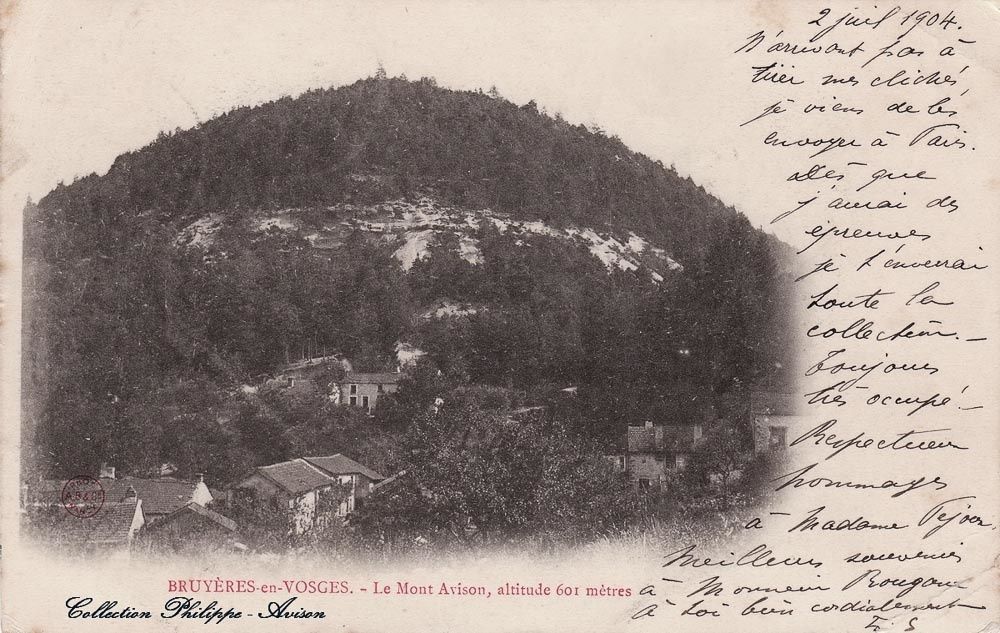 2 juil 1904.
N'arrivant pas à
tirer mes clichés,
je viens de les
envoyer à Paris.
Dès que
j'aurai des
épreuves
je t'enverrai
toute la
collection. —
Toujours
très occupé. —
Respectueux
hommages
à Madame
Meilleurs souvenirs
à Monsieur
à toi bien cordialement
BRUYÈRES-en-VOSGES. - Le Mont Avison, altitude 601 mètres
Collection Philippe - Avison